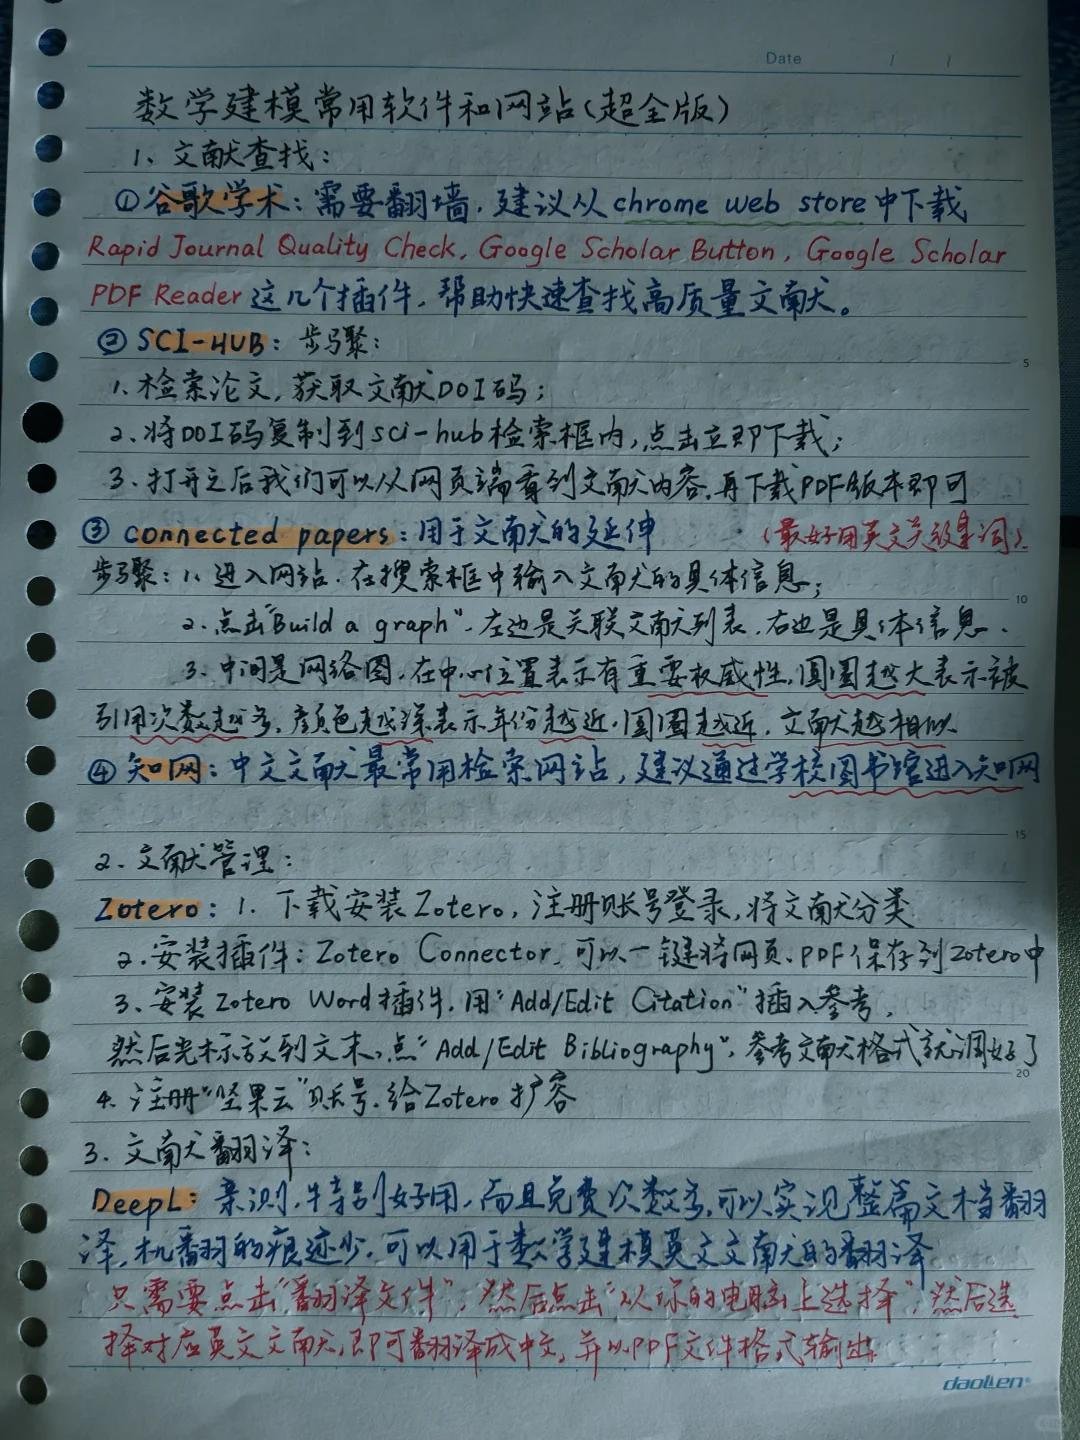 Date / /
数学建模常用软件和网站(超全版)
1、文献查找:
①谷歌学术:需要翻墙,建议从chrome web store中下载
Rapid Journal Quality Check, Google Scholar Button, Google Scholar
PDF Reader这几个插件,帮助快速查找高质量文献。
② SCI-HUB: 步骤:
1、检索论文,获取文献DOI码;
2、将DOI码复制到sci-hub检索框内,点击立即下载;
3、打开之后我们可以从网页端看到文献内容,再下载PDF版本即可
③ connected papers:用于文献的延伸 (最好用英文关键词)
步骤:1、进入网站,在搜索框中输入文献的具体信息;
2、点击"Build a graph",左边是关联文献列表,右边是具体信息、
3、中间是网络图,在中心位置表示有重要权威性,圆圈越大表示被
引用次数越多,颜色越深表示年份越近,圆圈越近,文献越相似
④知网:中文文献最常用检索网站,建议通过学校图书馆进入知网
2、文献管理:
Zotero:1、下载安装Zotero,注册账号登录,将文献分类
2、安装插件:Zotero Connector,可以一键将网页、PDF保存到Zotero中
3、安装Zotero Word插件,用"Add/Edit Citation"插入参考,
然后光标放到文末,点"Add/Edit Bibliography",参考文献格式就调好了
4、注册"坚果云"账号,给Zotero扩容
3、文献翻译:
DeepL:亲测,特别好用,而且免费次数多,可以实现整篇文档翻
译,机翻的痕迹少,可以用于数学建模英文文献的翻译
只需要点击"翻译文件",然后点击"从你的电脑上选择",然后选
择对应英文文献,即可翻译成中文,并以PDF文件格式输出。
5
10
15
20
daolien